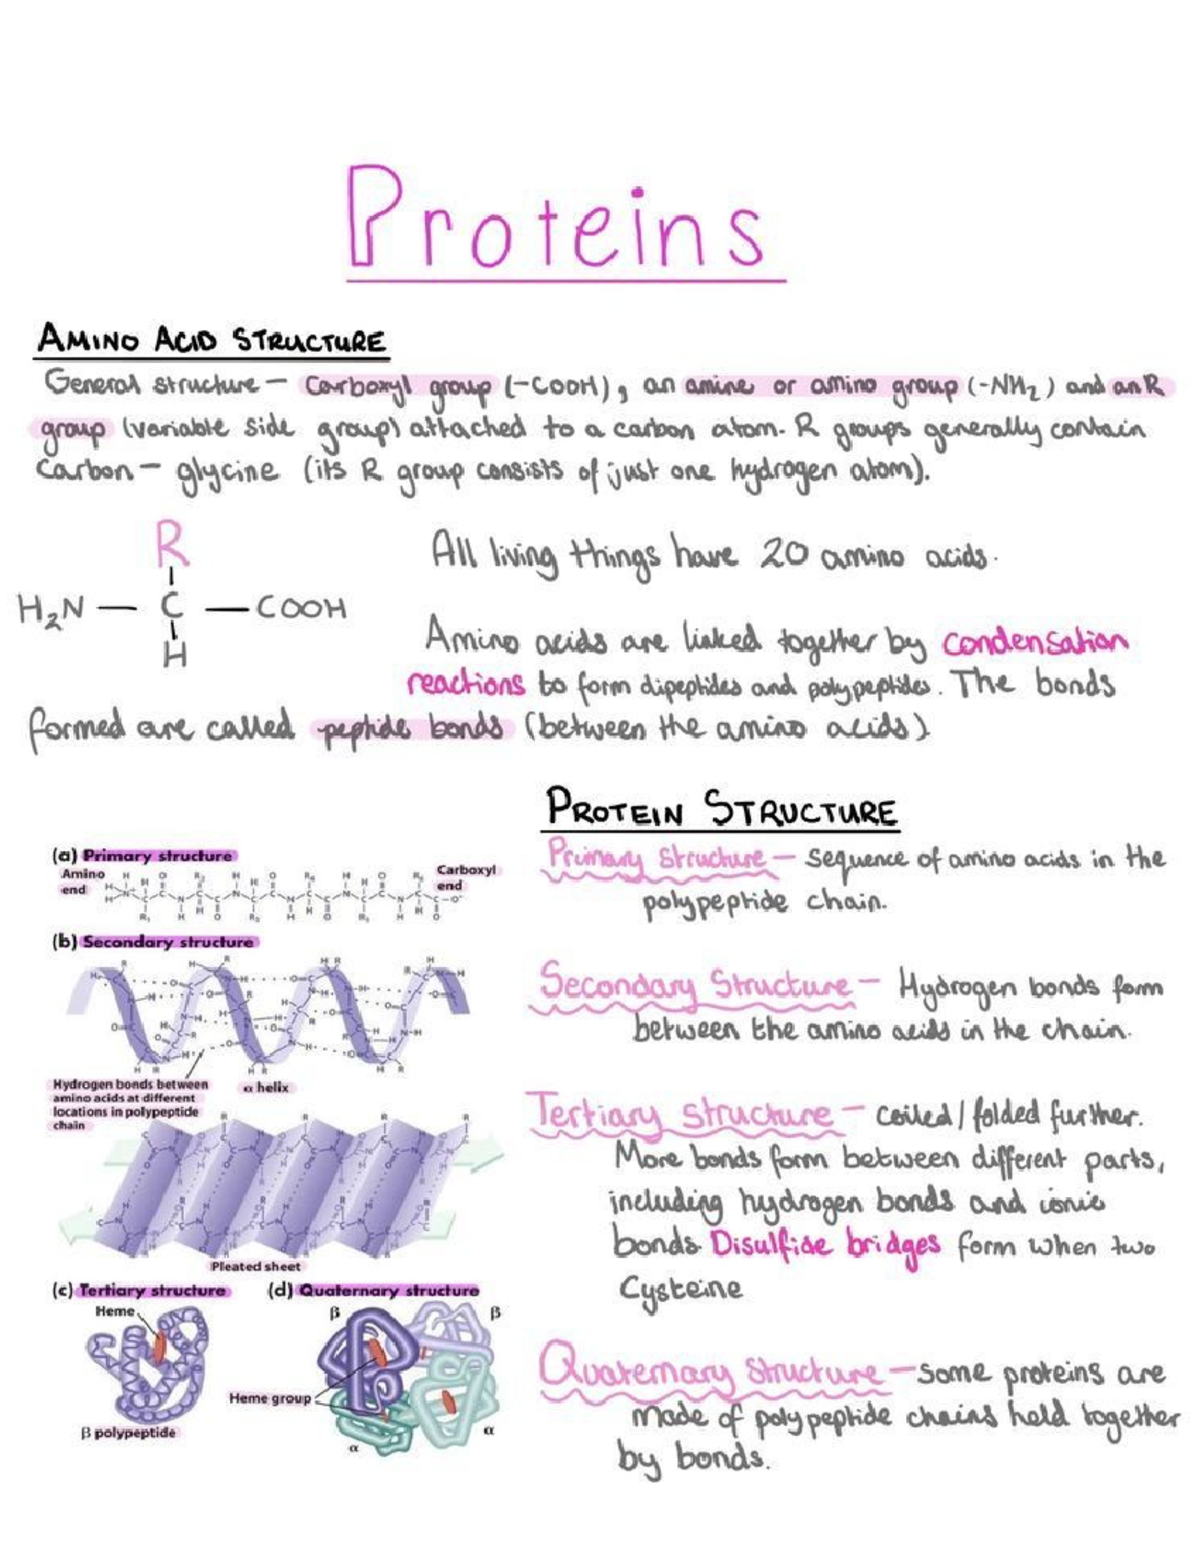 Proteins
AMINO ACID STRUCTURE
General structure – Carboxyl group (-COOH), an amine or amino group (-NH₂) and an R
group (variable side group) attached to a carbon atom. R groups generally contain
Carbon – glycine (its R group consists of just one hydrogen atom).
R
H₂N — C — COOH
H
All living things have 20 amino acids.
Amino acids are linked together by condensation
reactions to form dipeptides and polypeptides. The bonds
formed are called peptide bonds (between the amino acids)
PROTEIN STRUCTURE
Primary Structure – sequence of amino acids in the
polypeptide chain.
Secondary Structure – Hydrogen bonds form
between the amino acids in the chain.
Tertiary structure – coiled/folded further.
More bonds form between different parts,
including hydrogen bonds and ionic
bonds. Disulfide bridges form when two
Cysteine
Quaternary structure – some proteins are
made of polypeptide chains held together
by bonds.
(a) Primary structure
Amino
end
Carboxyl
end
(b) Secondary structure
Hydrogen bonds between
amino acids at different
locations in polypeptide
chain
α helix
Pleated sheet
(c) Tertiary structure
Heme
β polypeptide
(d) Quaternary structure
β
β
Heme group
α
α